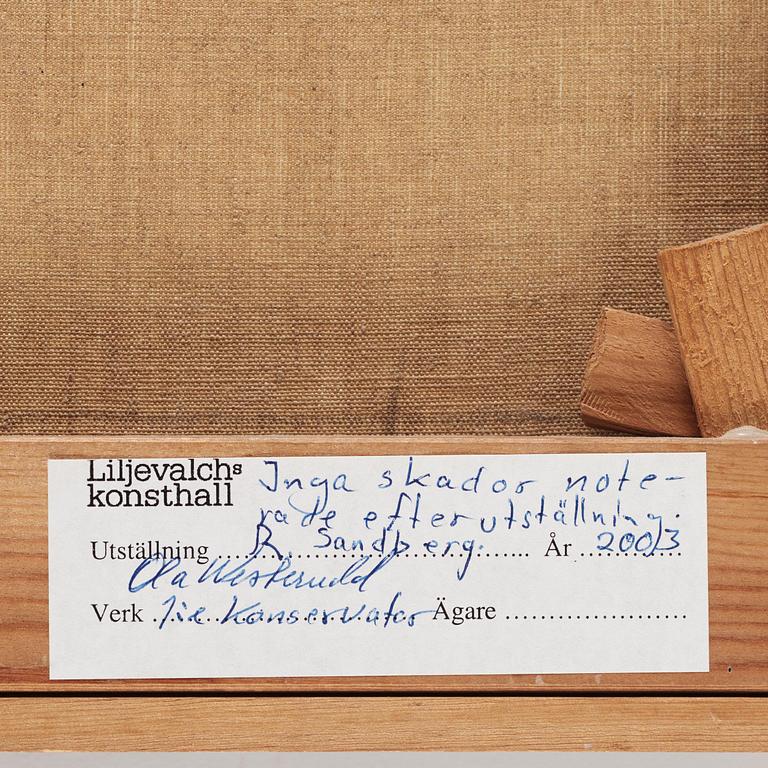 Liljevalchs
konsthall
Inga skador note-
rade efter utställning.
Utställning R. Sandberg. År 2003
Ola Westerudd
Verk Konservator Ägare